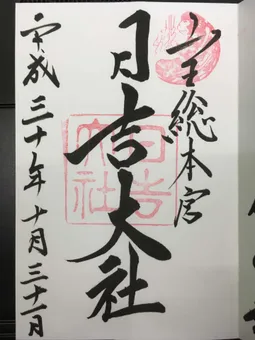 山王総本宮
日吉大社
平成三十年十月三十一日
日吉
大社